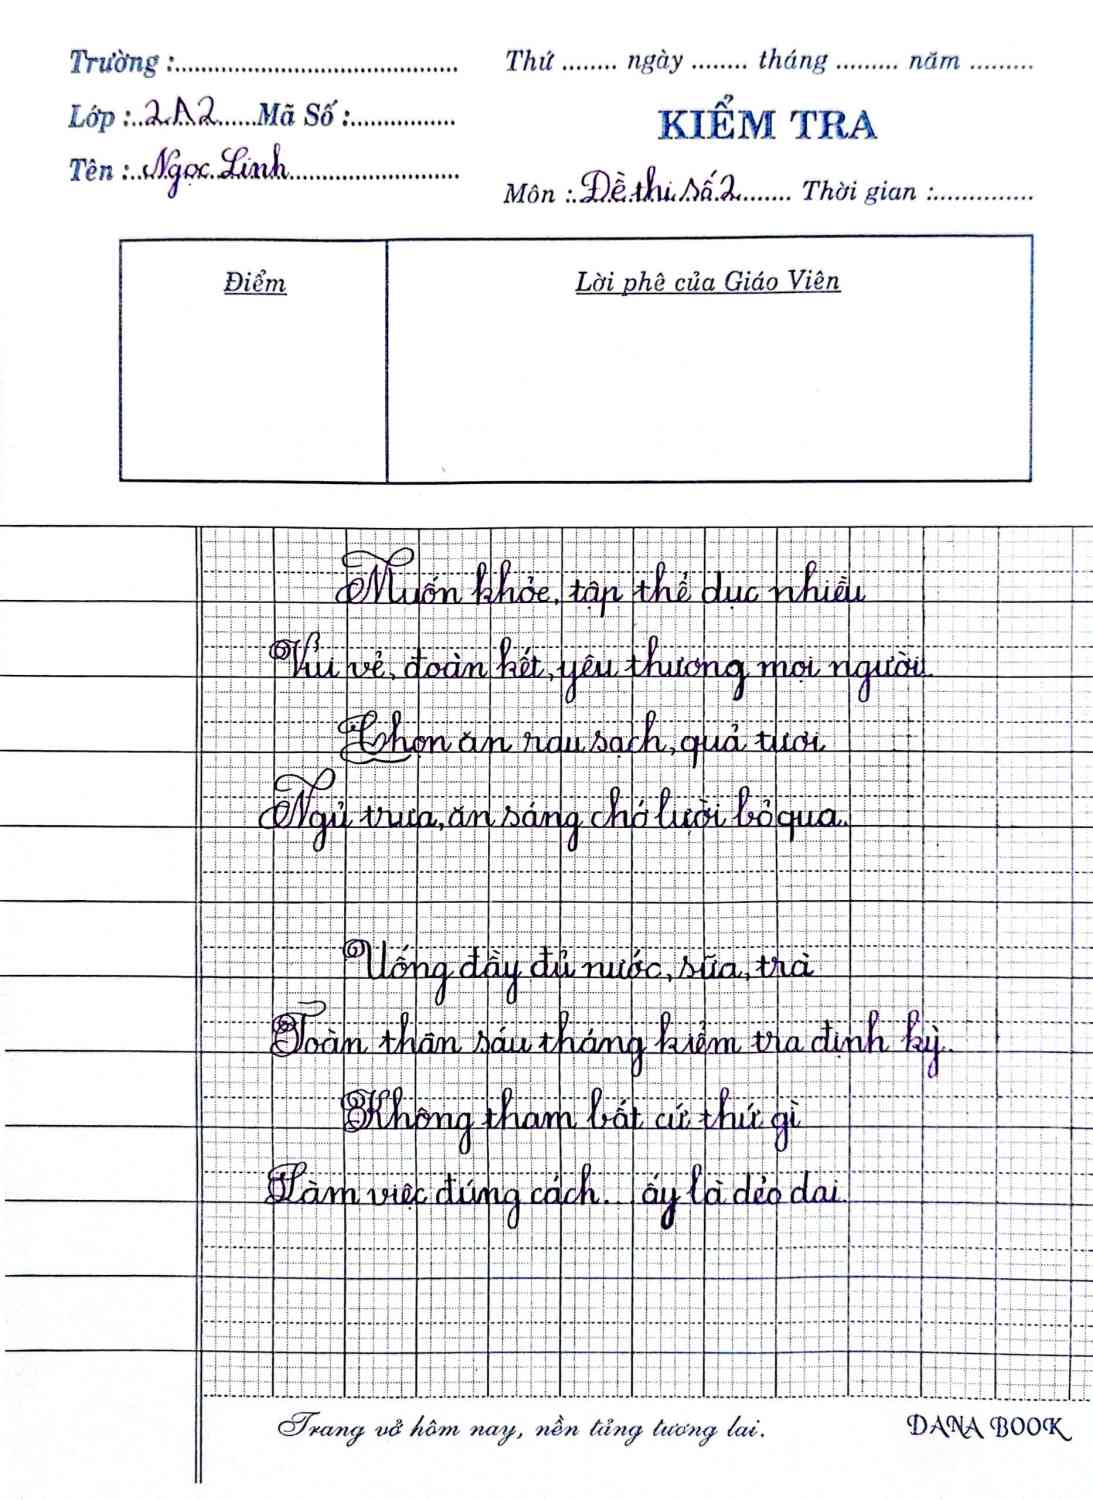 Trường :.......................................... Thứ ........ ngày ........ tháng ......... năm .........
Lớp :..2A2......Mã Số :............... KIỂM TRA
Tên :..Ngọc Linh......................... Môn :..Đề thi số 2........ Thời gian :...............
Điểm Lời phê của Giáo Viên
Muốn khỏe, tập thể dục nhiều
Vui vẻ, đoàn kết, yêu thương mọi người.
Chọn ăn rau sạch, quả tươi
Ngủ trưa, ăn sáng chớ lười bỏ qua.
Uống đầy đủ nước, sữa, trà
Toàn thân sáu tháng kiểm tra định kỳ.
Không tham bất cứ thứ gì
Làm việc đúng cách... ấy là dẻo dai.
Trang vở hôm nay, nền tảng tương lai. DANA BOOK